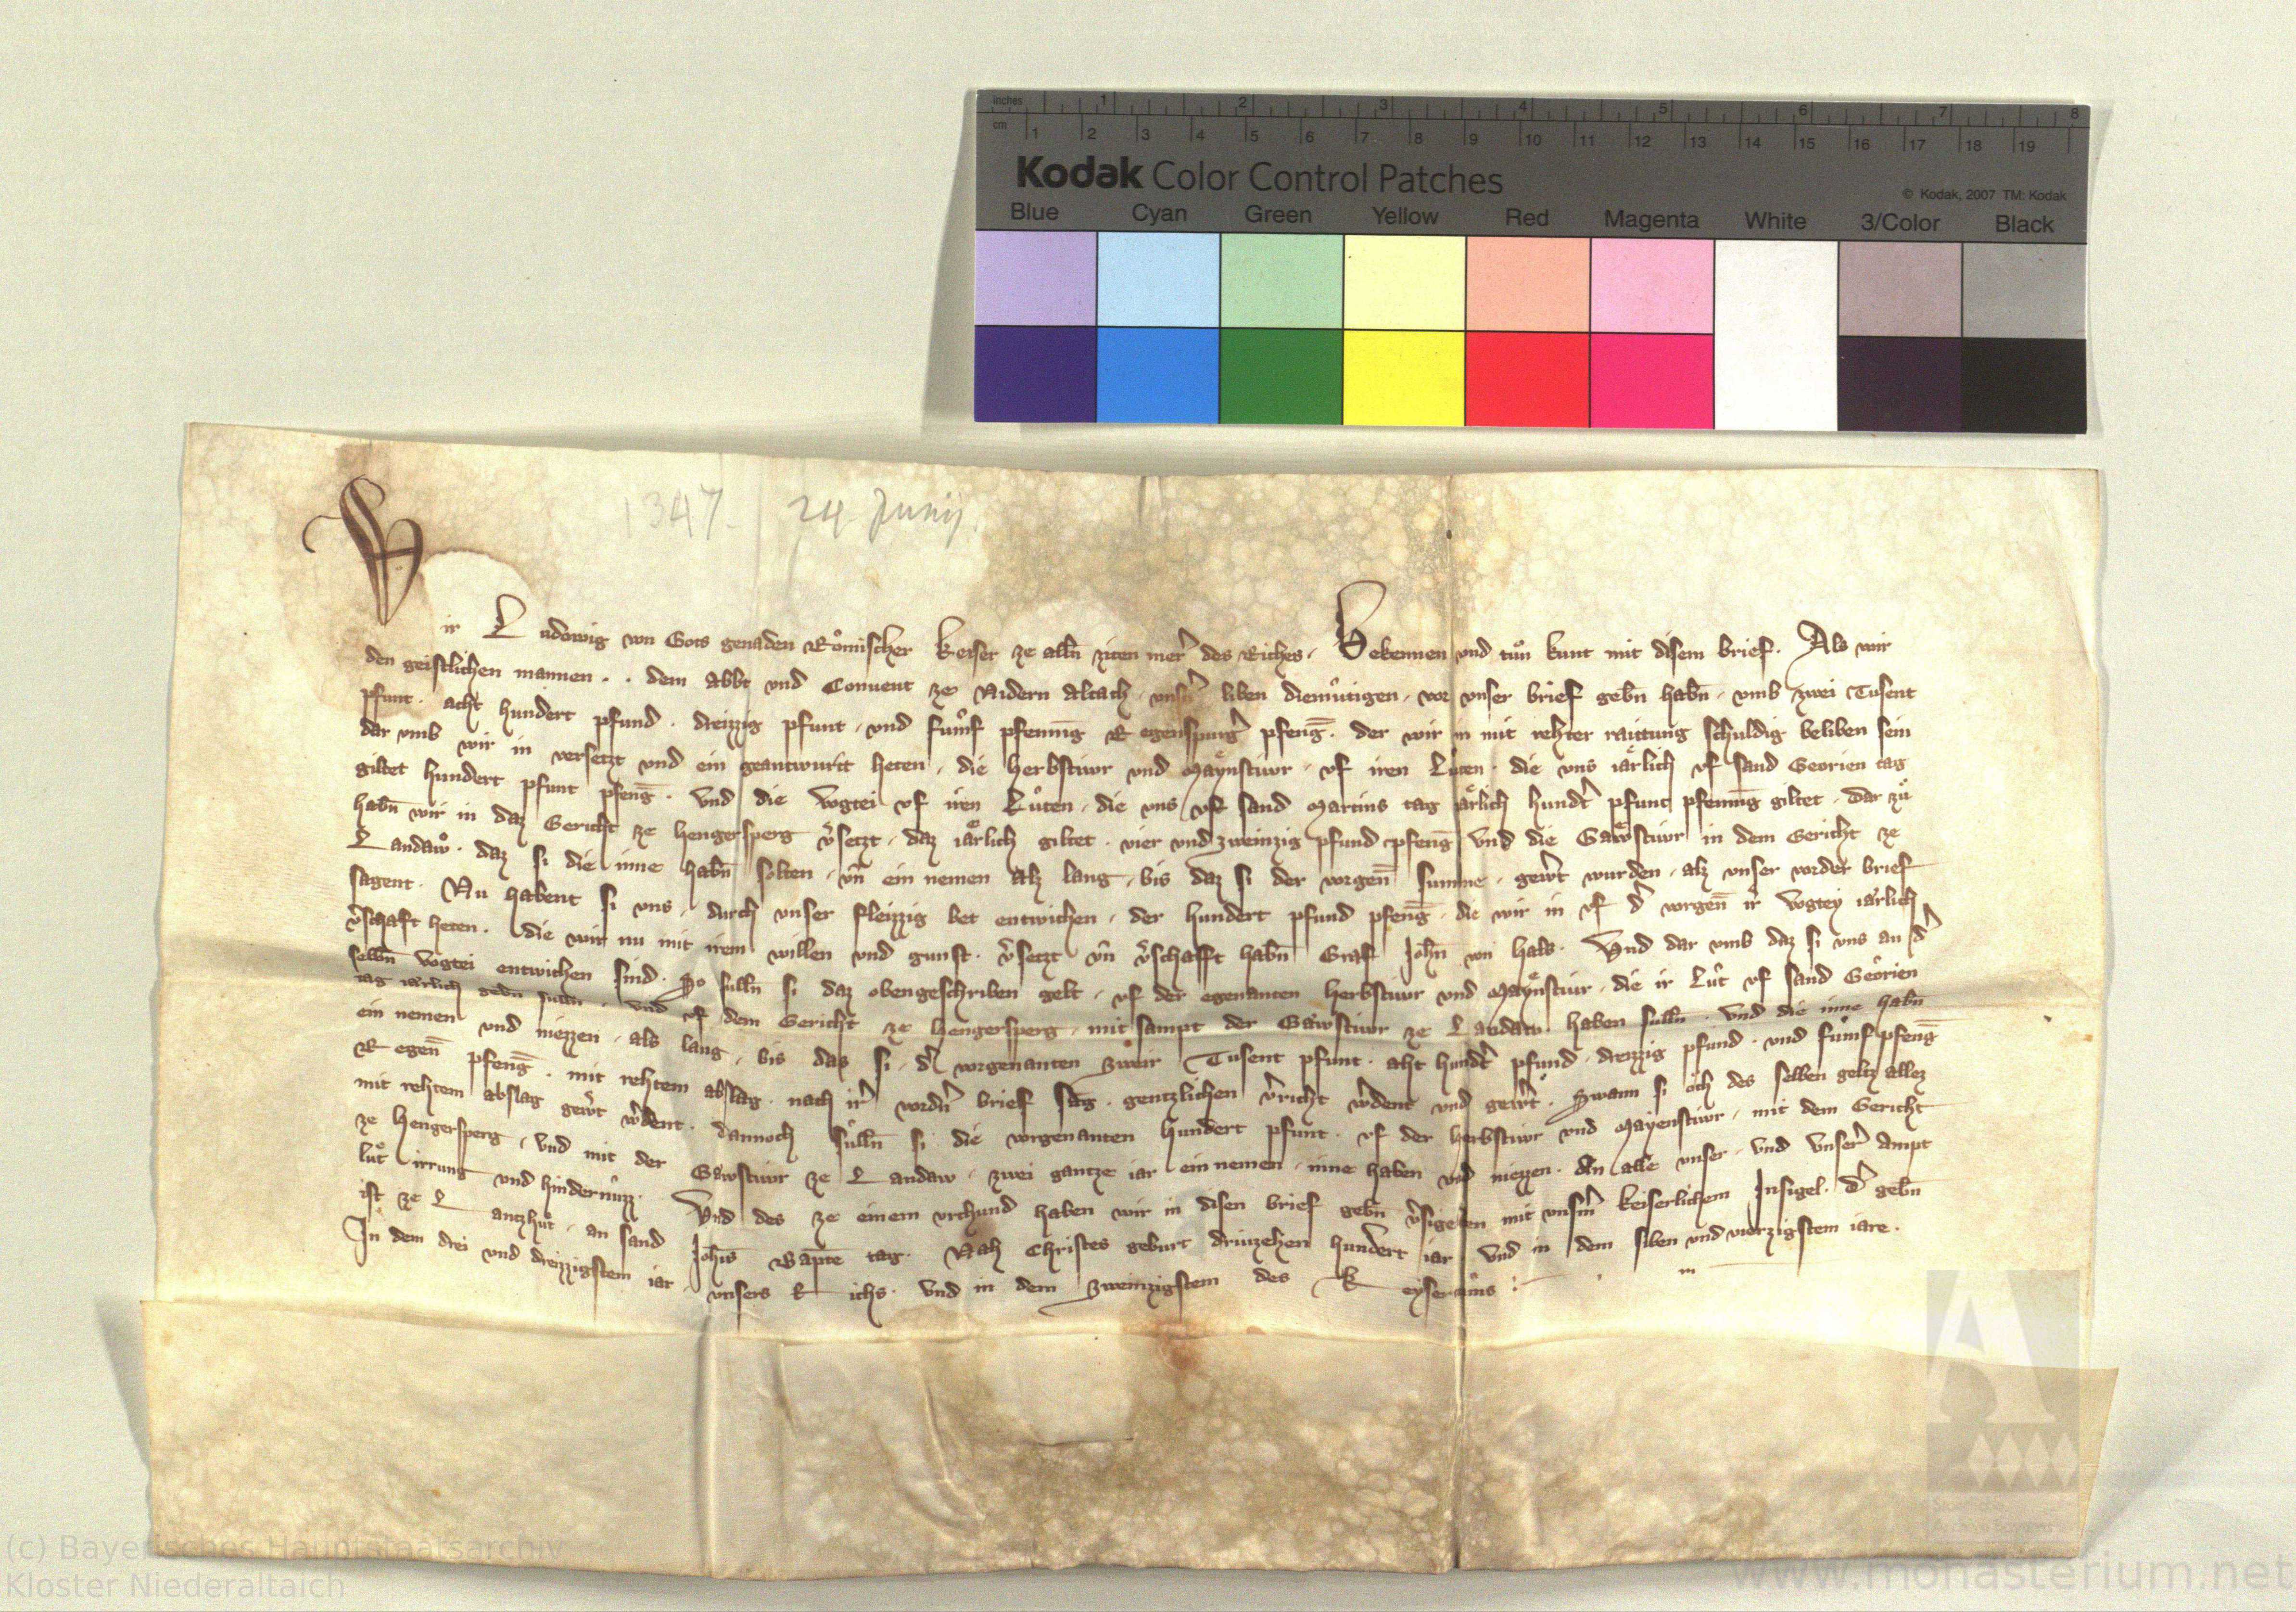 inches 1 2 3 4 5 6 7 8
cm 1 2 3 4 5 6 7 8 9 10 11 12 13 14 15 16 17 18 19
Kodak Color Control Patches
© Kodak, 2007 TM: Kodak
Blue Cyan Green Yellow Red Magenta White 3/Color Black
1347. 24 Junij.
Wir Ludowig von Gots genaden Roͤmischer Keiser ze alln̄ ziten merer des Riches. Bekennen und tuͦn kunt mit disem brief. Als wir
den geistlichen mannen . . dem Abbt und Convent ze Nidern Altach, liben diemuͤtigen, vor unser brief gebn̄ habn̄, umb zwei Tusent
pfunt. acht hundert pfund. dreizzig pfunt, und fuͤmf pfenning Regenspurger pfeng̅. der wir in mit rehter raittung schuldig beliben sein
dar umb wir in versetzt und ein geantwurtt heten, die herbstiwr und Maÿnstiwr, uf iren Luͤten. die uns iaͤrlich uf sand Georien tag
giltet hundert pfunt pfeng̅. und die Vogtei uf iren Luͤten, die uns uf sand Martins tag iaͤrlich hundert pfunt pfenning giltet. dar zuͦ
habn̄ wir in daz Gericht ze hengersperg v̉setzt, daz iaͤrlich giltet. vier und zweinzig pfund pfeng̅ und die Gawstiwr in dem Gericht ze
Landaw. daz si die inne habn̄ solten, un̄ ein nemen alz lang, bis daz si der vorgen̄ summe, gewert wurden, alz unser vorder brief
sagent. Nu habent si uns, durch unser fleizzig bet entwichen, der hundert pfund pfeng̅, die wir in uf der vorgen̄ ir Vogtey iaͤrlich
v̉schaft heten. die wir nu mit irem willen und gunst. v̉setzt un̄ v̉schafft habn̄ Graf John̄ von hals. Und dar umb daz si uns an der
selbn̄ Vogtei entwichen sind. So sulln̄ si daz obengeschriben gelt, uf der egenanten herbstiwr und Maÿnstiwr, die ir Luͤt uf sand Georien
tag iaͤrlich gebn̄ sulln̄, und uf dem Gericht ze hengersperg, mit sampt der Gawstiwr ze Landaw haben sulln̄. und die inne habn̄
ein nemen und niezzen, als lang, bis das si, der vorgenanten zweir Tusent pfunt. aht hundert pfund. dreizzig pfund. und fuͤmf pfeng̅
Regen̄ pfeng̅. mit rehtem abslag. nach irer vordern brief sag. gentzlichen v̉richt werdent und gewert. Swann si och des selben geltz allez
mit rehtem abslag gewert werdent. dannoch suͤlln̄ si die vorgenanten hundert pfunt. uf der herbstiwr und Mayenstiwr, mit dem Gericht
ze hengersperg, und mit der Gawstiwr ze Landaw, zwei gantze iar ein nemen, inne haben und niezzen. An alle unser, und unserer Ampt
luͤt irrung und hindernuͤzz. Und des ze einem urchund haben wir in disen brief gebn̄ v̉sigelten mit unserm keiserlichem Insigel. der gebn̄
ist ze Lantzhuͦt, an sand Joh̅is Bapt̅e tag. Nah Christes geburt driuzehen hundert iar und in dem siben und vierzigstem iare.
In dem drei und dreizzigstem iar unsers Richs. und in dem zweinzigstem des Keysertuͦms
(c) Bayerisches Hauptstaatsarchiv
Kloster Niederaltaich
www.monasterium.net